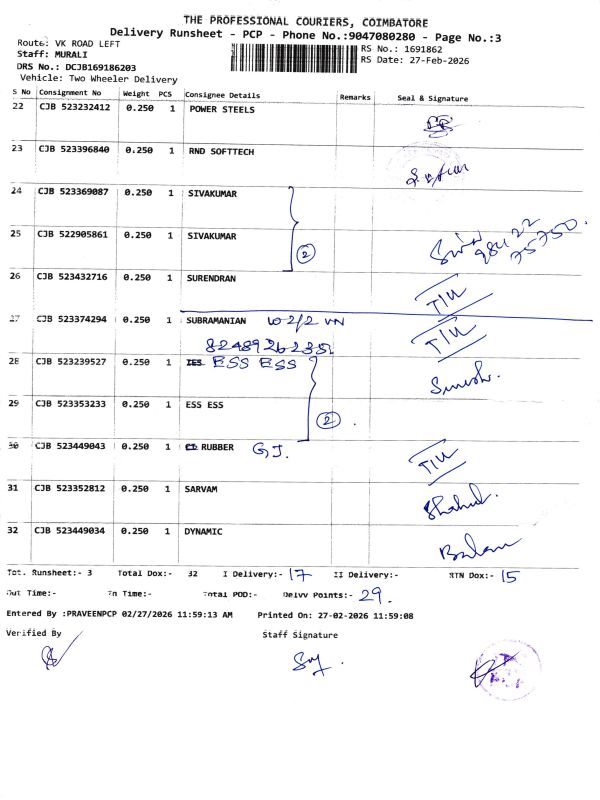 THE PROFESSIONAL COURIERS, COIMBATORE
Delivery Runsheet - PCP - Phone No.:9047080280 - Page No.:3
Route: VK ROAD LEFT
RS No.: 1691862
Staff: MURALI
RS Date: 27-Feb-2026
DRS No.: DCJB169186203
Vehicle: Two Wheeler Delivery
S No Consignment No Weight PCS Consignee Details Remarks Seal & Signature
22 CJB 523232412 0.250 1 POWER STEELS
23 CJB 523396840 0.250 1 RND SOFTTECH
24 CJB 523369087 0.250 1 SIVAKUMAR
25 CJB 522905861 0.250 1 SIVAKUMAR
2
98422
75750
26 CJB 523432716 0.250 1 SURENDRAN T/U
27 CJB 523374294 0.250 1 SUBRAMANIAN T/U
28 CJB 523239527 0.250 1 IES ESS ESS
29 CJB 523353233 0.250 1 ESS ESS
2
30 CJB 523449043 0.250 1 CI RUBBER G.J. T/U
31 CJB 523352812 0.250 1 SARVAM Shahul
32 CJB 523449034 0.250 1 DYNAMIC
Tot. Runsheet:- 3 Total Dox:- 32 I Delivery:- 17 II Delivery:- RTN Dox:- 15
Out Time:- In Time:- Total POD:- Delvv Points:- 29
Entered By :PRAVEENPCP 02/27/2026 11:59:13 AM Printed On: 27-02-2026 11:59:08
Verified By Staff Signature